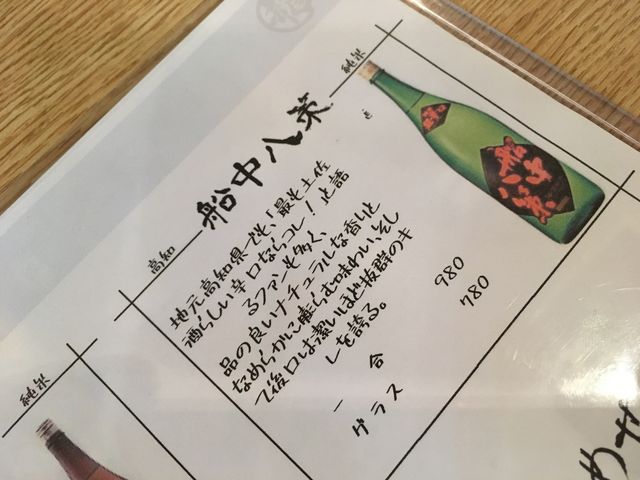 純米
船中八策
高知
地元高知県でも、「最も土佐
酒らしい辛口ならコレ!」と語
るファンも多く、
品の良いナチュラルな香りと
なめらかに膨らむ味わい、そし
て後口は潔いほど抜群のキ
レを誇る。
一合 980
グラス 780
船中八策
純米